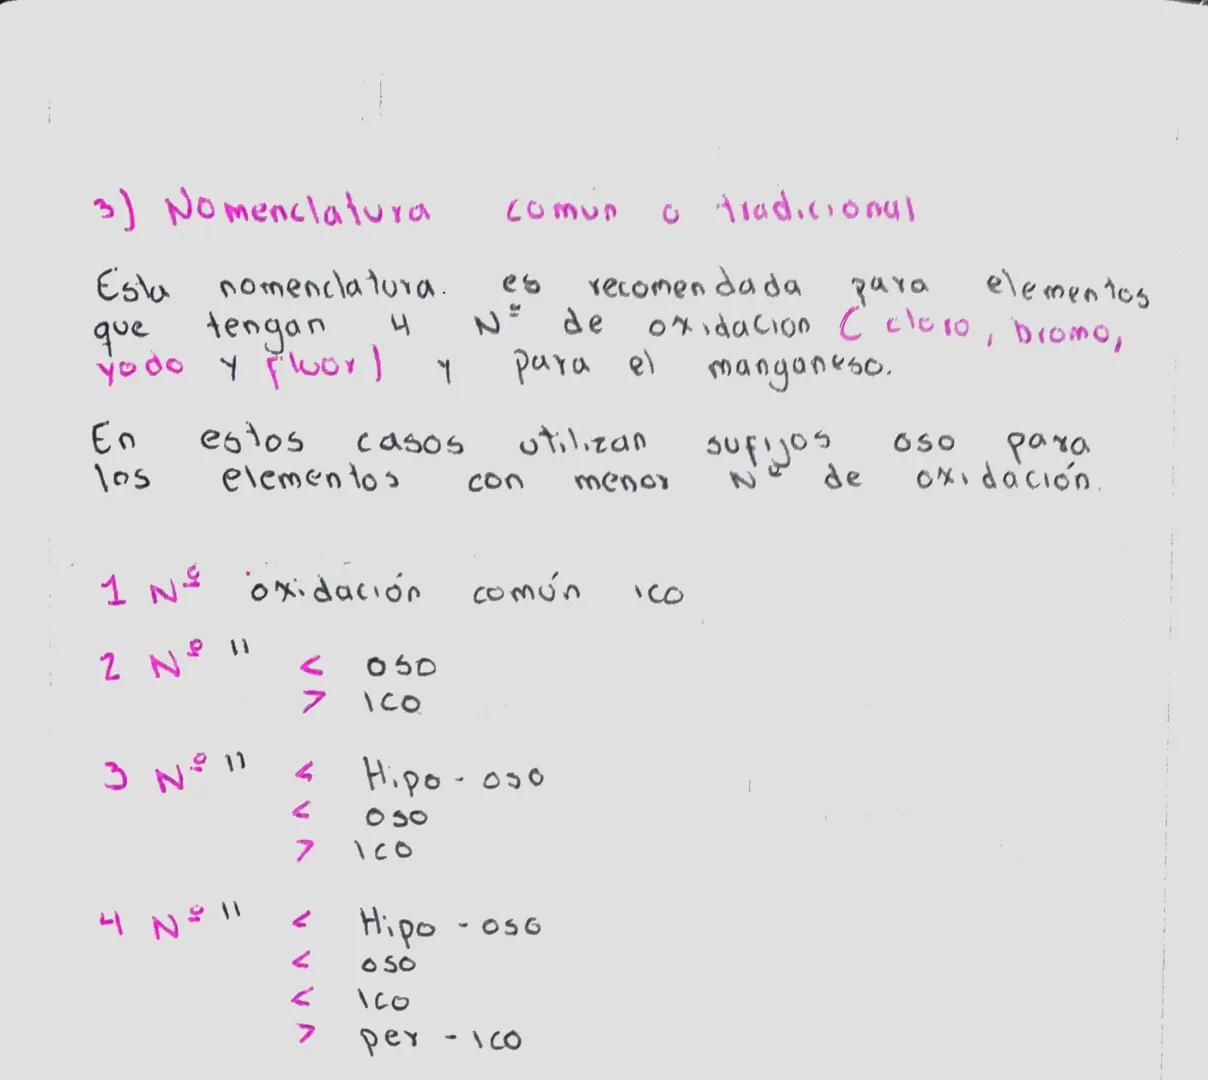 3) Nomenclatura comun o tradicional
Esta nomenclatura. es recomendada para elementos
que tengan 4 Nº de oxidacion ( cloro, bromo,
yodo y fluor) y para el manganeso.
En estos casos utilizan sufijos oso para
los elementos con menor Nº de oxidación.
1 Nº oxidación común ico
2 Nº " < oso
> ico
3 Nº " < Hipo - oso
< oso
> ico
4 Nº " < Hipo - oso
< oso
< ico
> per - ico